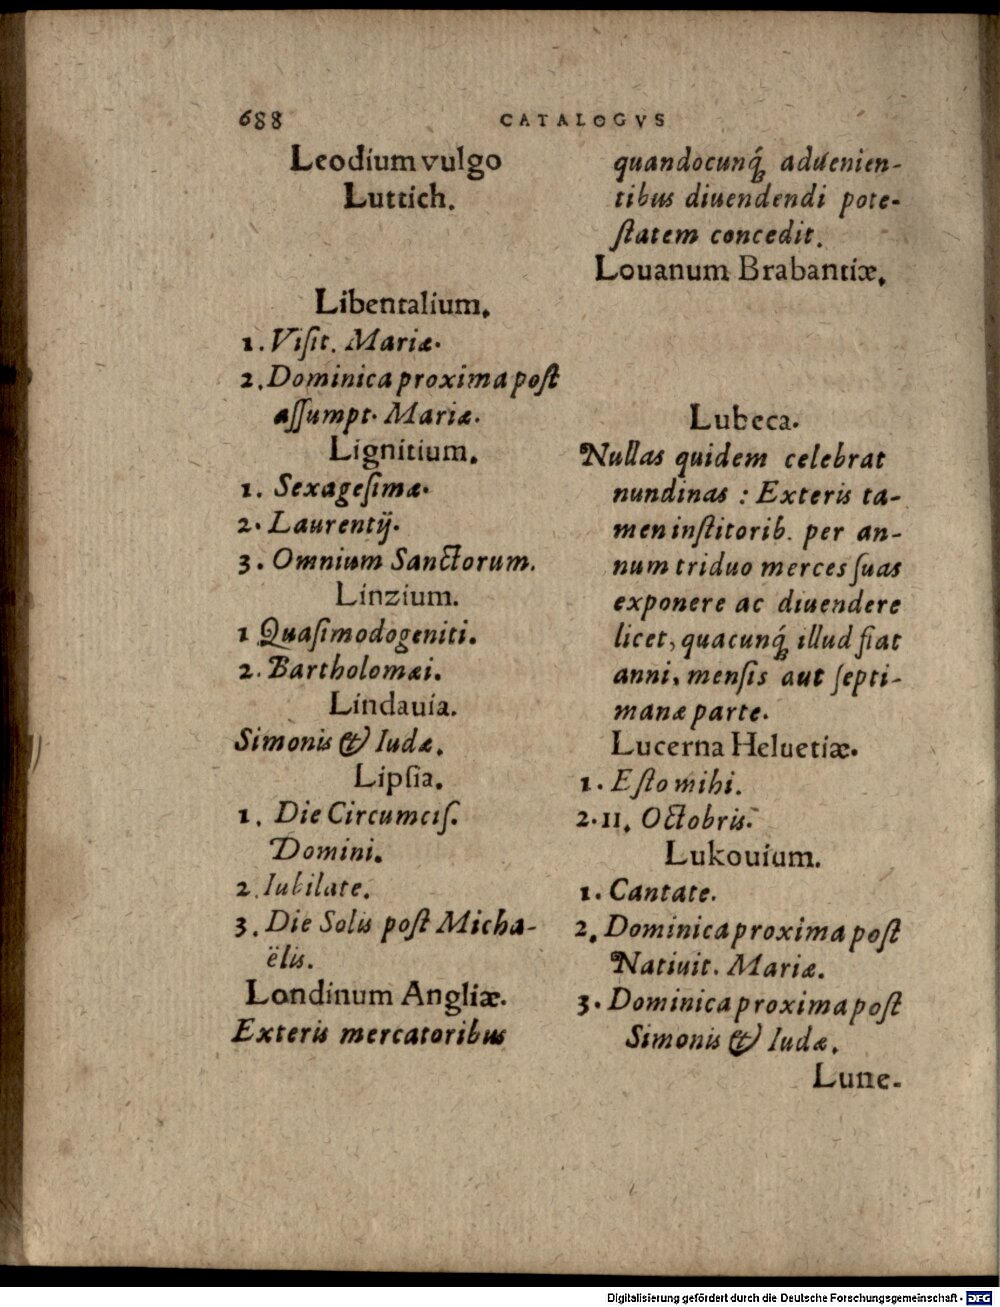 688
CATALOGVS
Leodium vulgo
Luttich.
Libentalium.
1. Viſit. Mariæ.
2. Dominica proxima poſt
aſſumpt. Mariæ.
Lignitium.
1. Sexageſimæ.
2. Laurentij.
3. Omnium Sanctorum.
Linzium.
1 Quaſimodogeniti.
2. Bartholomæi.
Lindauia.
Simonis & Iudæ.
Lipſia.
1. Die Circumciſ.
Domini.
2. Iubilate.
3. Die Solis poſt Micha-
ëlis.
Londinum Angliæ.
Exteris mercatoribus
quandocunq́; aduenien-
tibus diuendendi pote-
ſtatem concedit.
Louanum Brabantiæ.
Lubeca.
Nullas quidem celebrat
nundinas : Exteris ta-
men inſtitorib. per an-
num triduo merces ſuas
exponere ac diuendere
licet, quacunq́; illud fiat
anni, menſis aut ſepti-
manæ parte.
Lucerna Heluetiæ.
1. Eſto mihi.
2. 11. Octobris.
Lukouium.
1. Cantate.
2. Dominica proxima poſt
Natiuit. Mariæ.
3. Dominica proxima poſt
Simonis & Iudæ.
Lune-
Digitalisierung gefördert durch die Deutsche Forschungsgemeinschaft - DFG